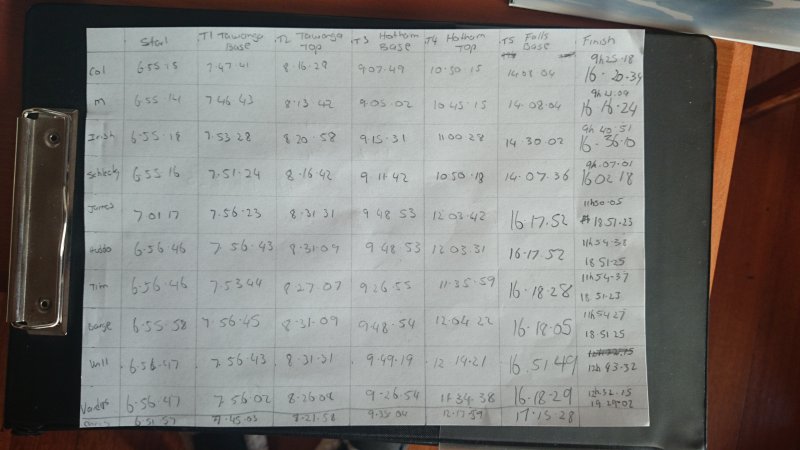 Start T1 Tawonga Base T2 Tawonga Top T3 Hotham Base T4 Hotham Top T5 Falls Base Finish
Col 6.55.15 7.47.41 8.16.28 9.07.49 10.50.15 14.08.04 9h25.18 16.20.34
M 6.55.14 7.46.43 8.13.42 9.05.02 10.45.15 14.08.04 16.16.24
Irish 6.55.18 7.53.28 8.20.58 9.15.31 11.00.28 14.30.02 9h 40 51 16.36.10
Schlecky 6.55.16 7.51.24 8.16.42 9.11.42 10.50.18 14.07.36 9h.07.01 16.02.18
James 7.01.17 7.56.23 8.31.31 9.48.53 12.03.42 16.17.52 11h50.05 18.51.23
6.56.46 7.56.43 8.31.09 9.48.53 12.03.31 16.17.52 11h54.38 18.51.25
Tim 6.56.46 7.53.44 8.27.07 9.26.55 11.35.59 16.18.28 11h54.37 18.51.23
Barge 6.55.58 7.56.45 8.31.09 9.48.54 12.04.22 16.18.05 11h54.27 18.51.25
Will 6.56.47 7.56.43 8.31.31 9.49.19 12.14.21 16.51.49 12h 43.32
6.56.47 7.56.02 8.26.08 9.26.54 11.34.38 16.18.29 12h.32.15 19.29.02
6.51.57 7.45.03 8.21.58 9.35.04 12.17.59 17.15.28